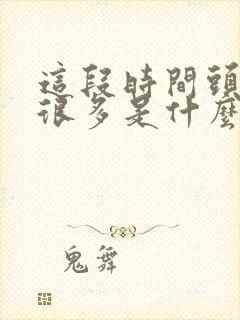 這段時間頭
很多是什麼
鬼舞